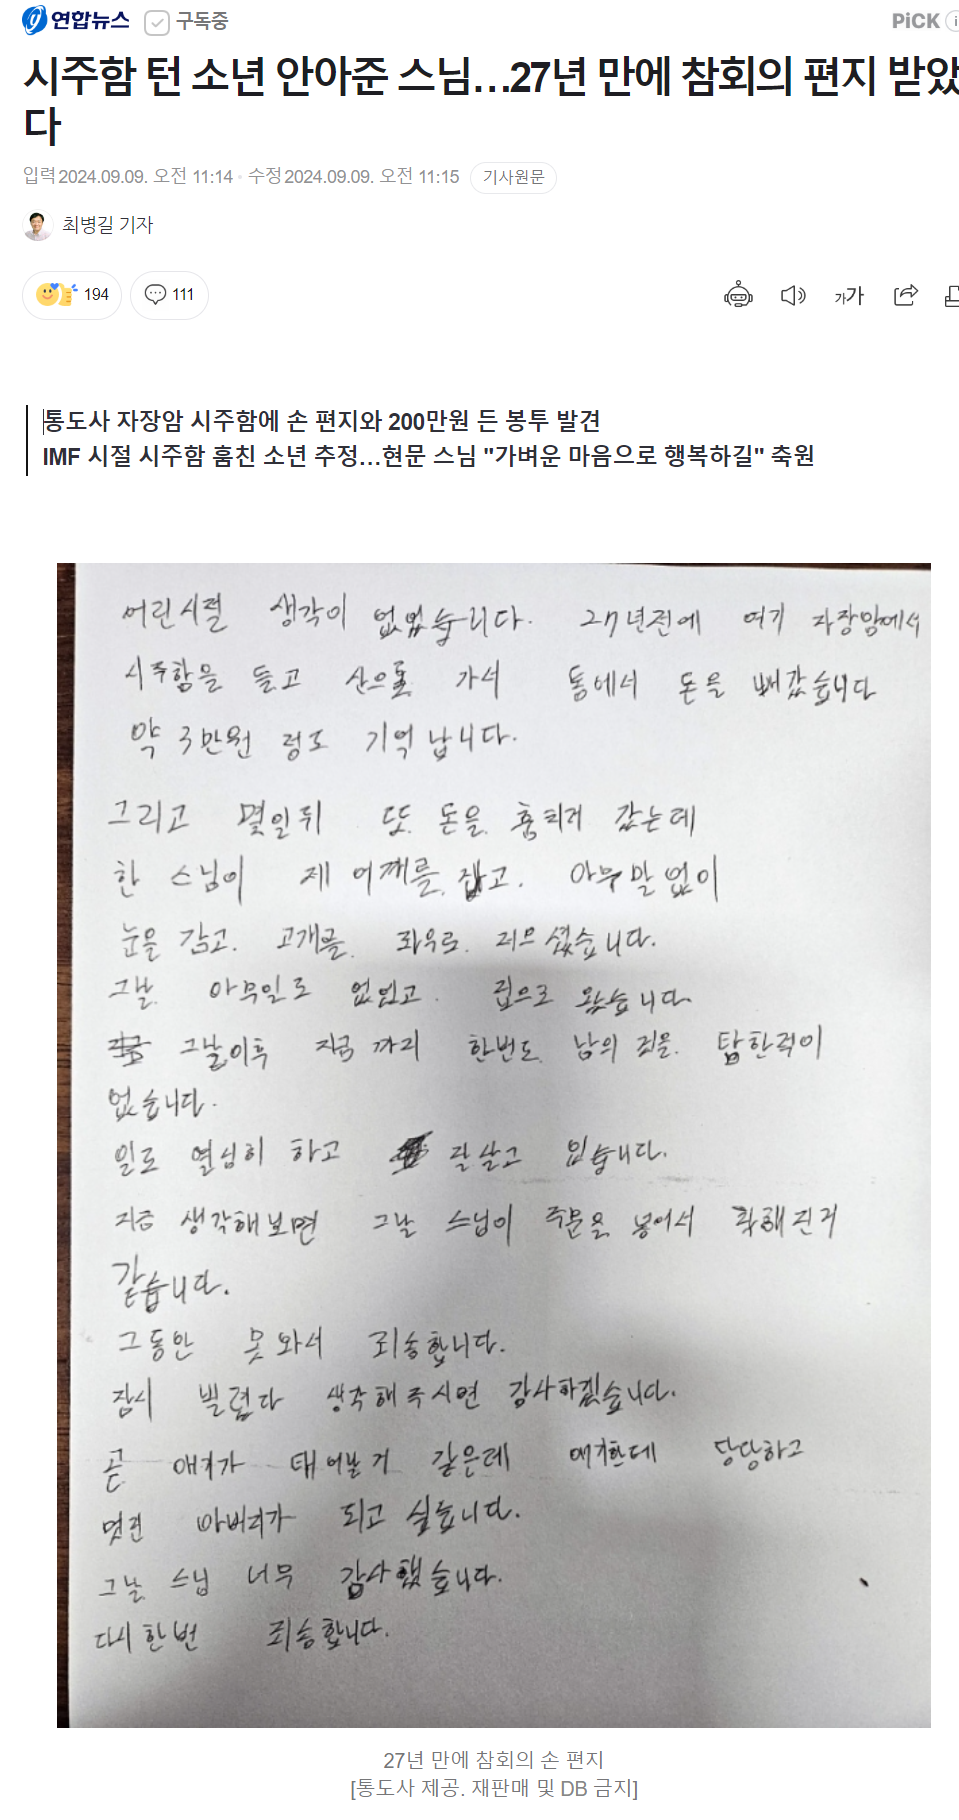 연합뉴스 구독중 PiCK
시주함 턴 소년 안아준 스님…27년 만에 참회의 편지 받았
다
입력 2024.09.09. 오전 11:14 · 수정 2024.09.09. 오전 11:15 기사원문
최병길 기자
194 111 가가
통도사 자장암 시주함에 손 편지와 200만원 든 봉투 발견
IMF 시절 시주함 훔친 소년 추정…현문 스님 "가벼운 마음으로 행복하길" 축원
어린시절 생각이 없었습니다. 27년전에 여기 자장암에서
시주함을 들고 산으로 가서 통에서 돈을 빼갔습니다
약 3만원 정도 기억 납니다.
그리고 몇일뒤 또 돈을 훔치러 갔는데
한 스님이 제 어깨를 잡고. 아무말 없이
눈을 감고. 고개를 좌우로 저으셨습니다.
그날 아무일도 없었고. 집으로 왔습니다.
그날이후 지금 까지 한번도 남의 것을 탐한적이
없습니다.
일도 열심히 하고 잘살고 있습니다.
지금 생각해보면 그날 스님이 주문을 넣어서 착해진거
같습니다.
그동안 못와서 죄송합니다.
잠시 빌렸다 생각해주시면 감사하겠습니다.
곧 애기가 태어날거 같은데 애기한테 당당하고
멋진 아버지가 되고 싶습니다.
그날 스님 너무 감사했습니다.
다시한번 죄송합니다.
27년 만에 참회의 손 편지
[통도사 제공. 재판매 및 DB 금지]